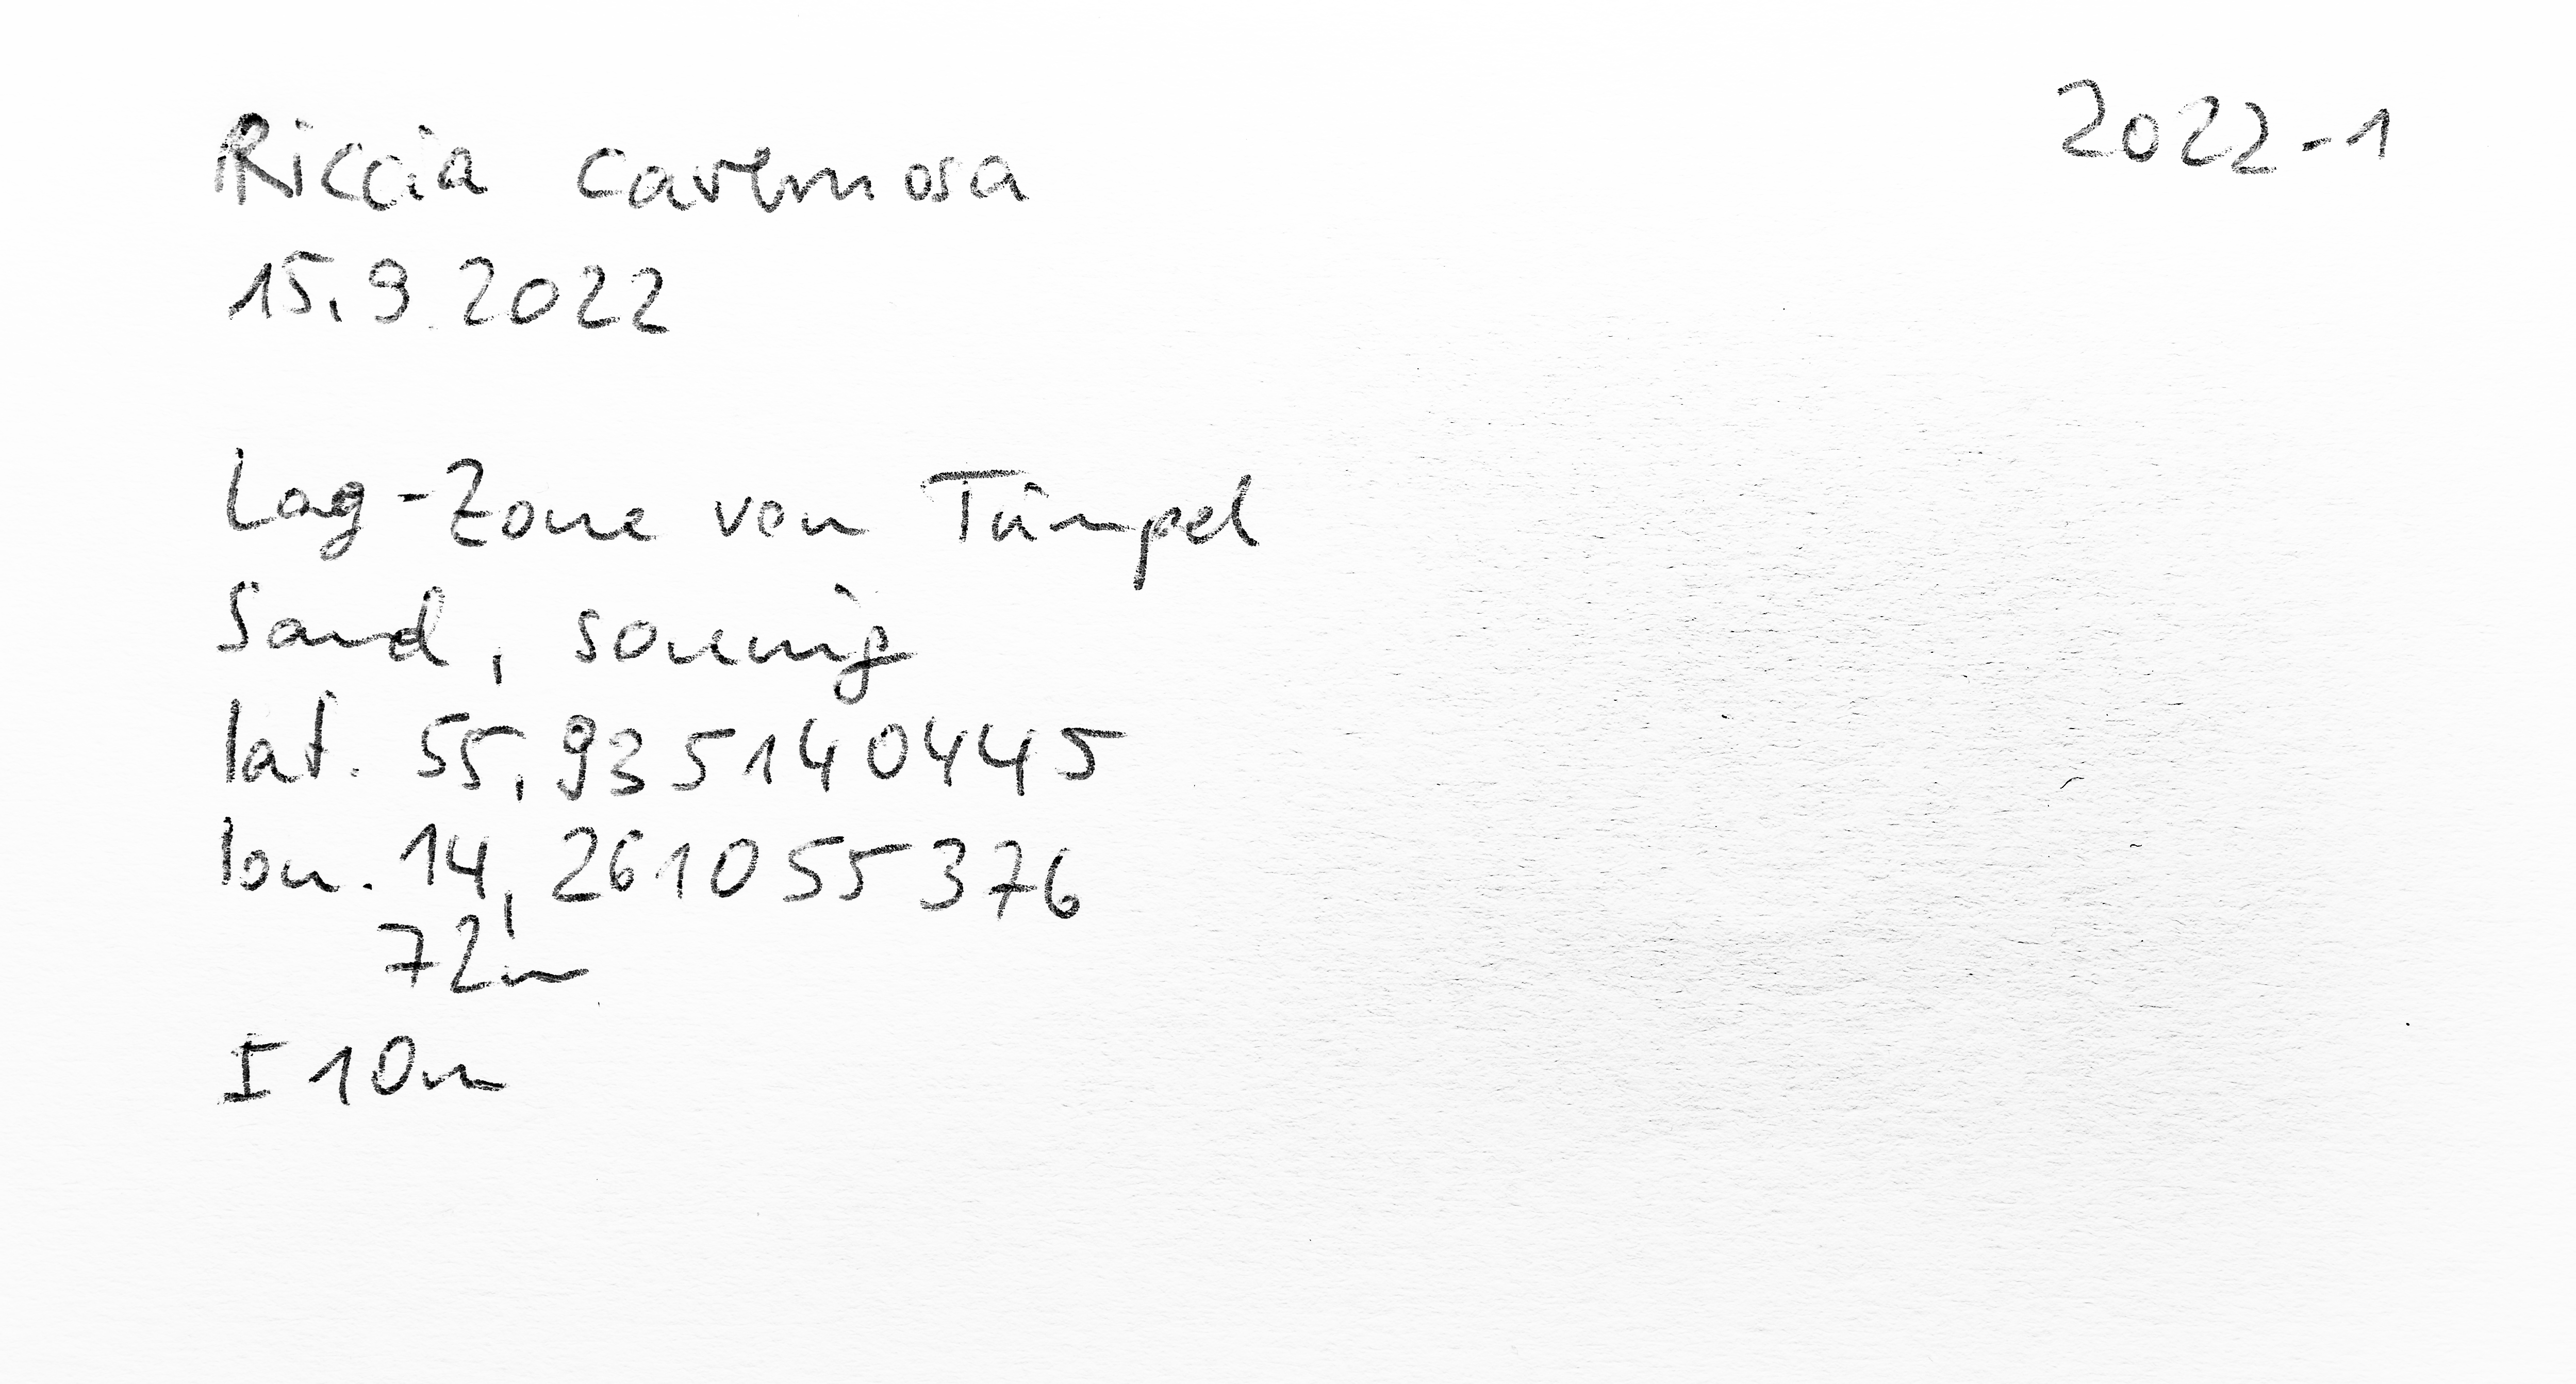 2022-1
Riccia cavernosa
15.9.2022
Lag-Zone von Tümpel
Sand, sonnig
lat. 55,935140445
lon. 14,261055376
72m
I 10m